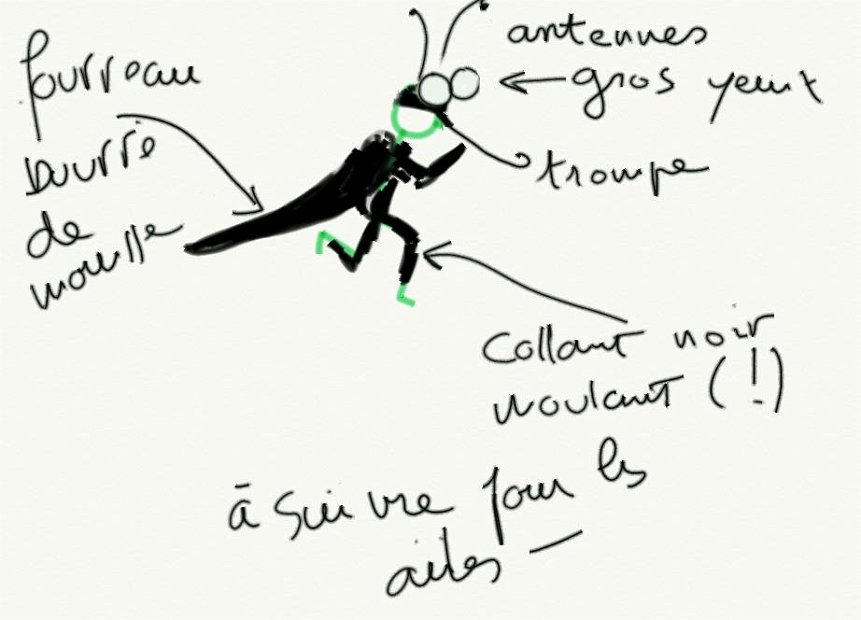 antennes
gros yeux
trompe
fourreau
bourré
de
mousse
Collant noir
moulant (!)
à suivre pour les
ailes —